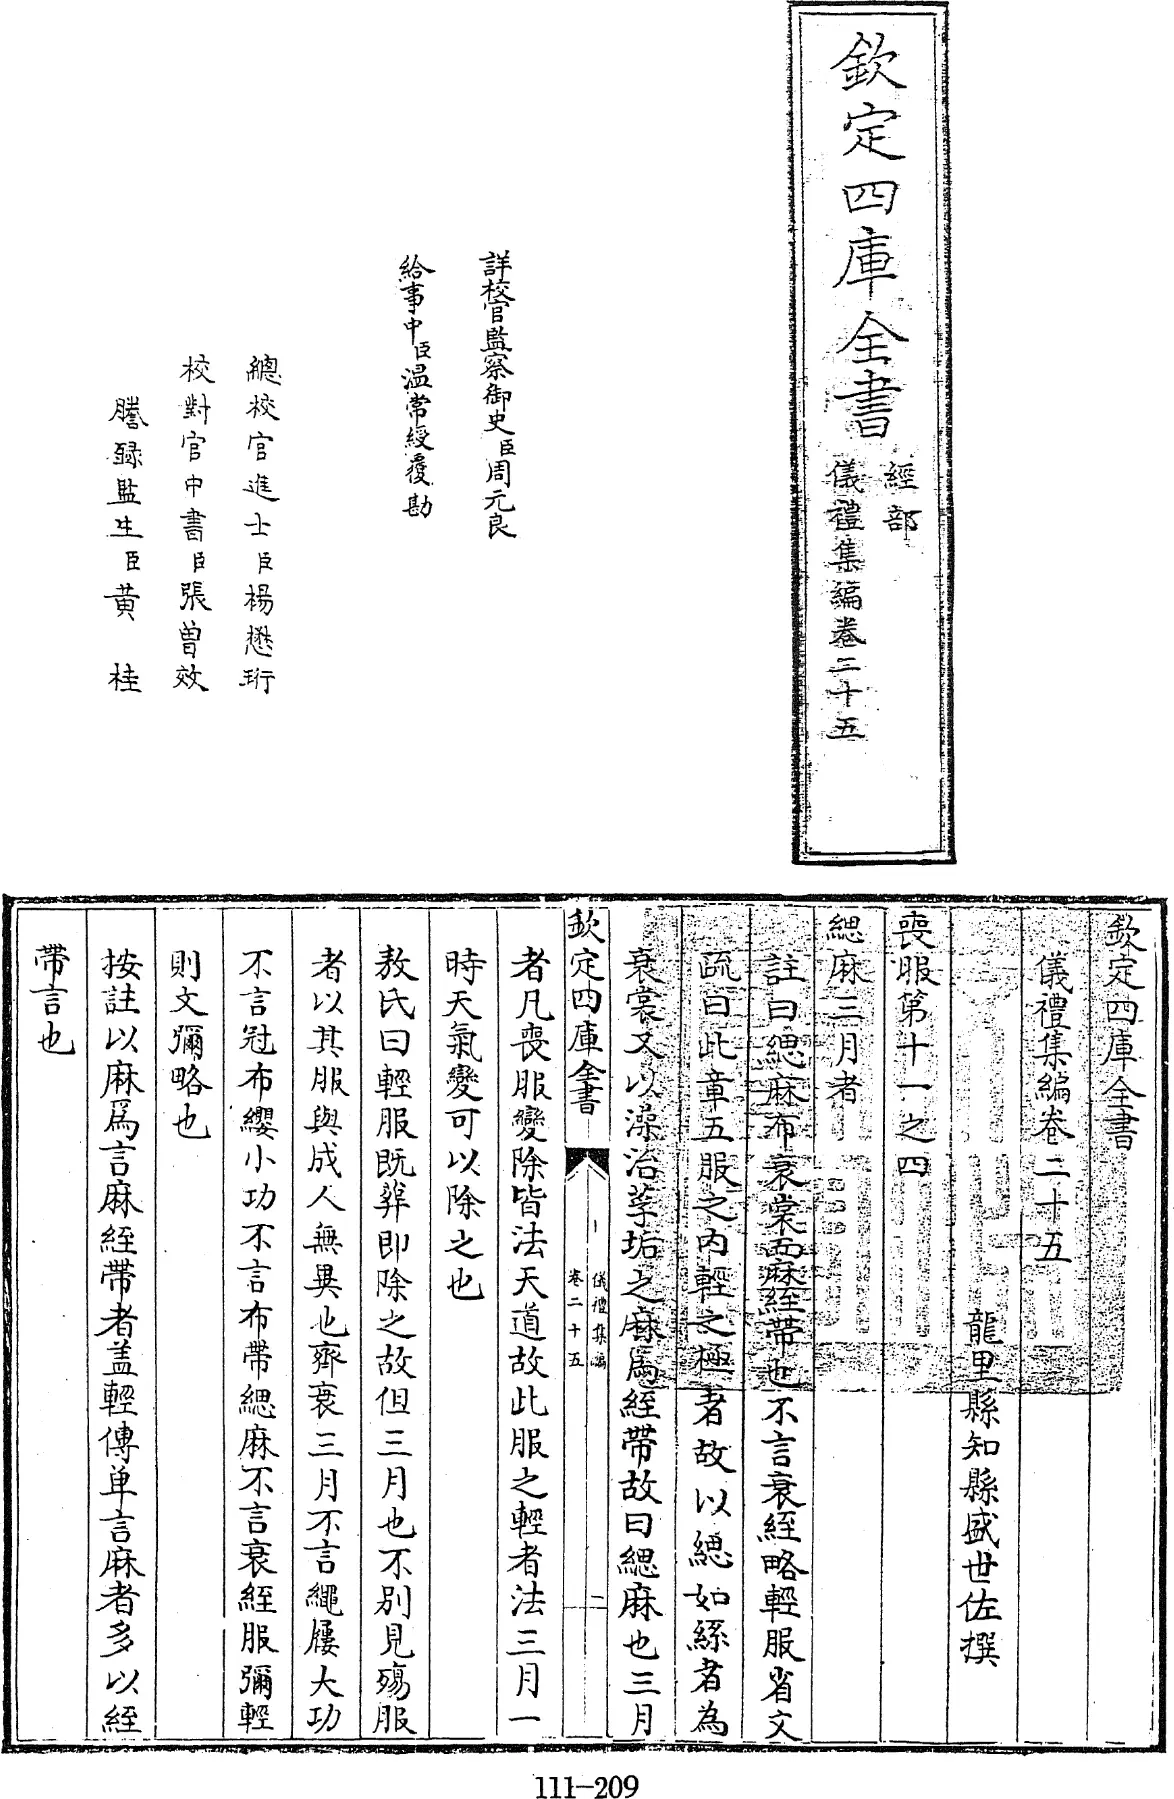 欽定四庫全書
經部
儀禮集編卷二十五
詳校官監察御史臣周元良
給事中臣温常綬覆勘
總校官進士臣楊懋珩
校對官中書臣張曾效
謄録監生臣黄桂
欽定四庫全書
儀禮集編卷二十五
龍里縣知縣盛世佐撰
喪服第十一之四
緦麻三月者
註曰緦麻布衰裳而麻絰帶也不言衰絰略輕服省文
疏曰此章五服之内輕之極者故以緦如絲者為
衰裳又以澡治莩垢之麻爲絰帶故曰緦麻也三月
欽定四庫全書
儀禮集編
卷二十五
二
者凡喪服變除皆法天道故此服之輕者法三月一
時天氣變可以除之也
敖氏曰輕服既葬即除之故但三月也不别見殤服
者以其服與成人無異也齊衰三月不言繩屨大功
不言冠布纓小功不言布帶緦麻不言衰絰服彌輕
則文彌略也
按註以麻爲言麻絰帶者蓋輕傳单言麻者多以絰
帶言也
111-209